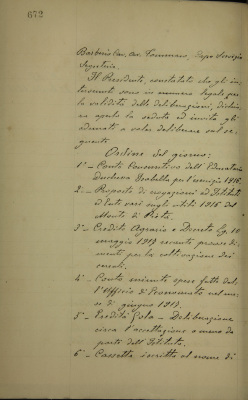 672
Barberis Cav. Avv. Tommaso, Capo Servizio
Segreteria.
Il Presidente, constatato che gli in-
tervenuti sono in numero legale per
la validità delle deliberazioni, dichia-
ra aperta la seduta ed invita gli
adunati a voler deliberare sul se-
guente
Ordine del giorno:
1° - Conto Consuntivo dell'
Duchessa Isabella per l'esercizio 1916.
2. - Proposta di erogazioni ad Istituti
ed Enti vari sugli utili 1916 del
Monte di Pietà.
3° - Credito Agrario e Decreto Lg. 10
maggio 1917 recante provvedi-
menti per la coltivazione dei
cereali.
4° - Conto minute spese fatte dal-
l'Ufficio di Economato nel me-
se di giugno 1917.
5° - Eredità Gola - Deliberazione
circa l'accettazione o meno da
parte dell'Istituto.
6° - Cassetta iscritta al nome di